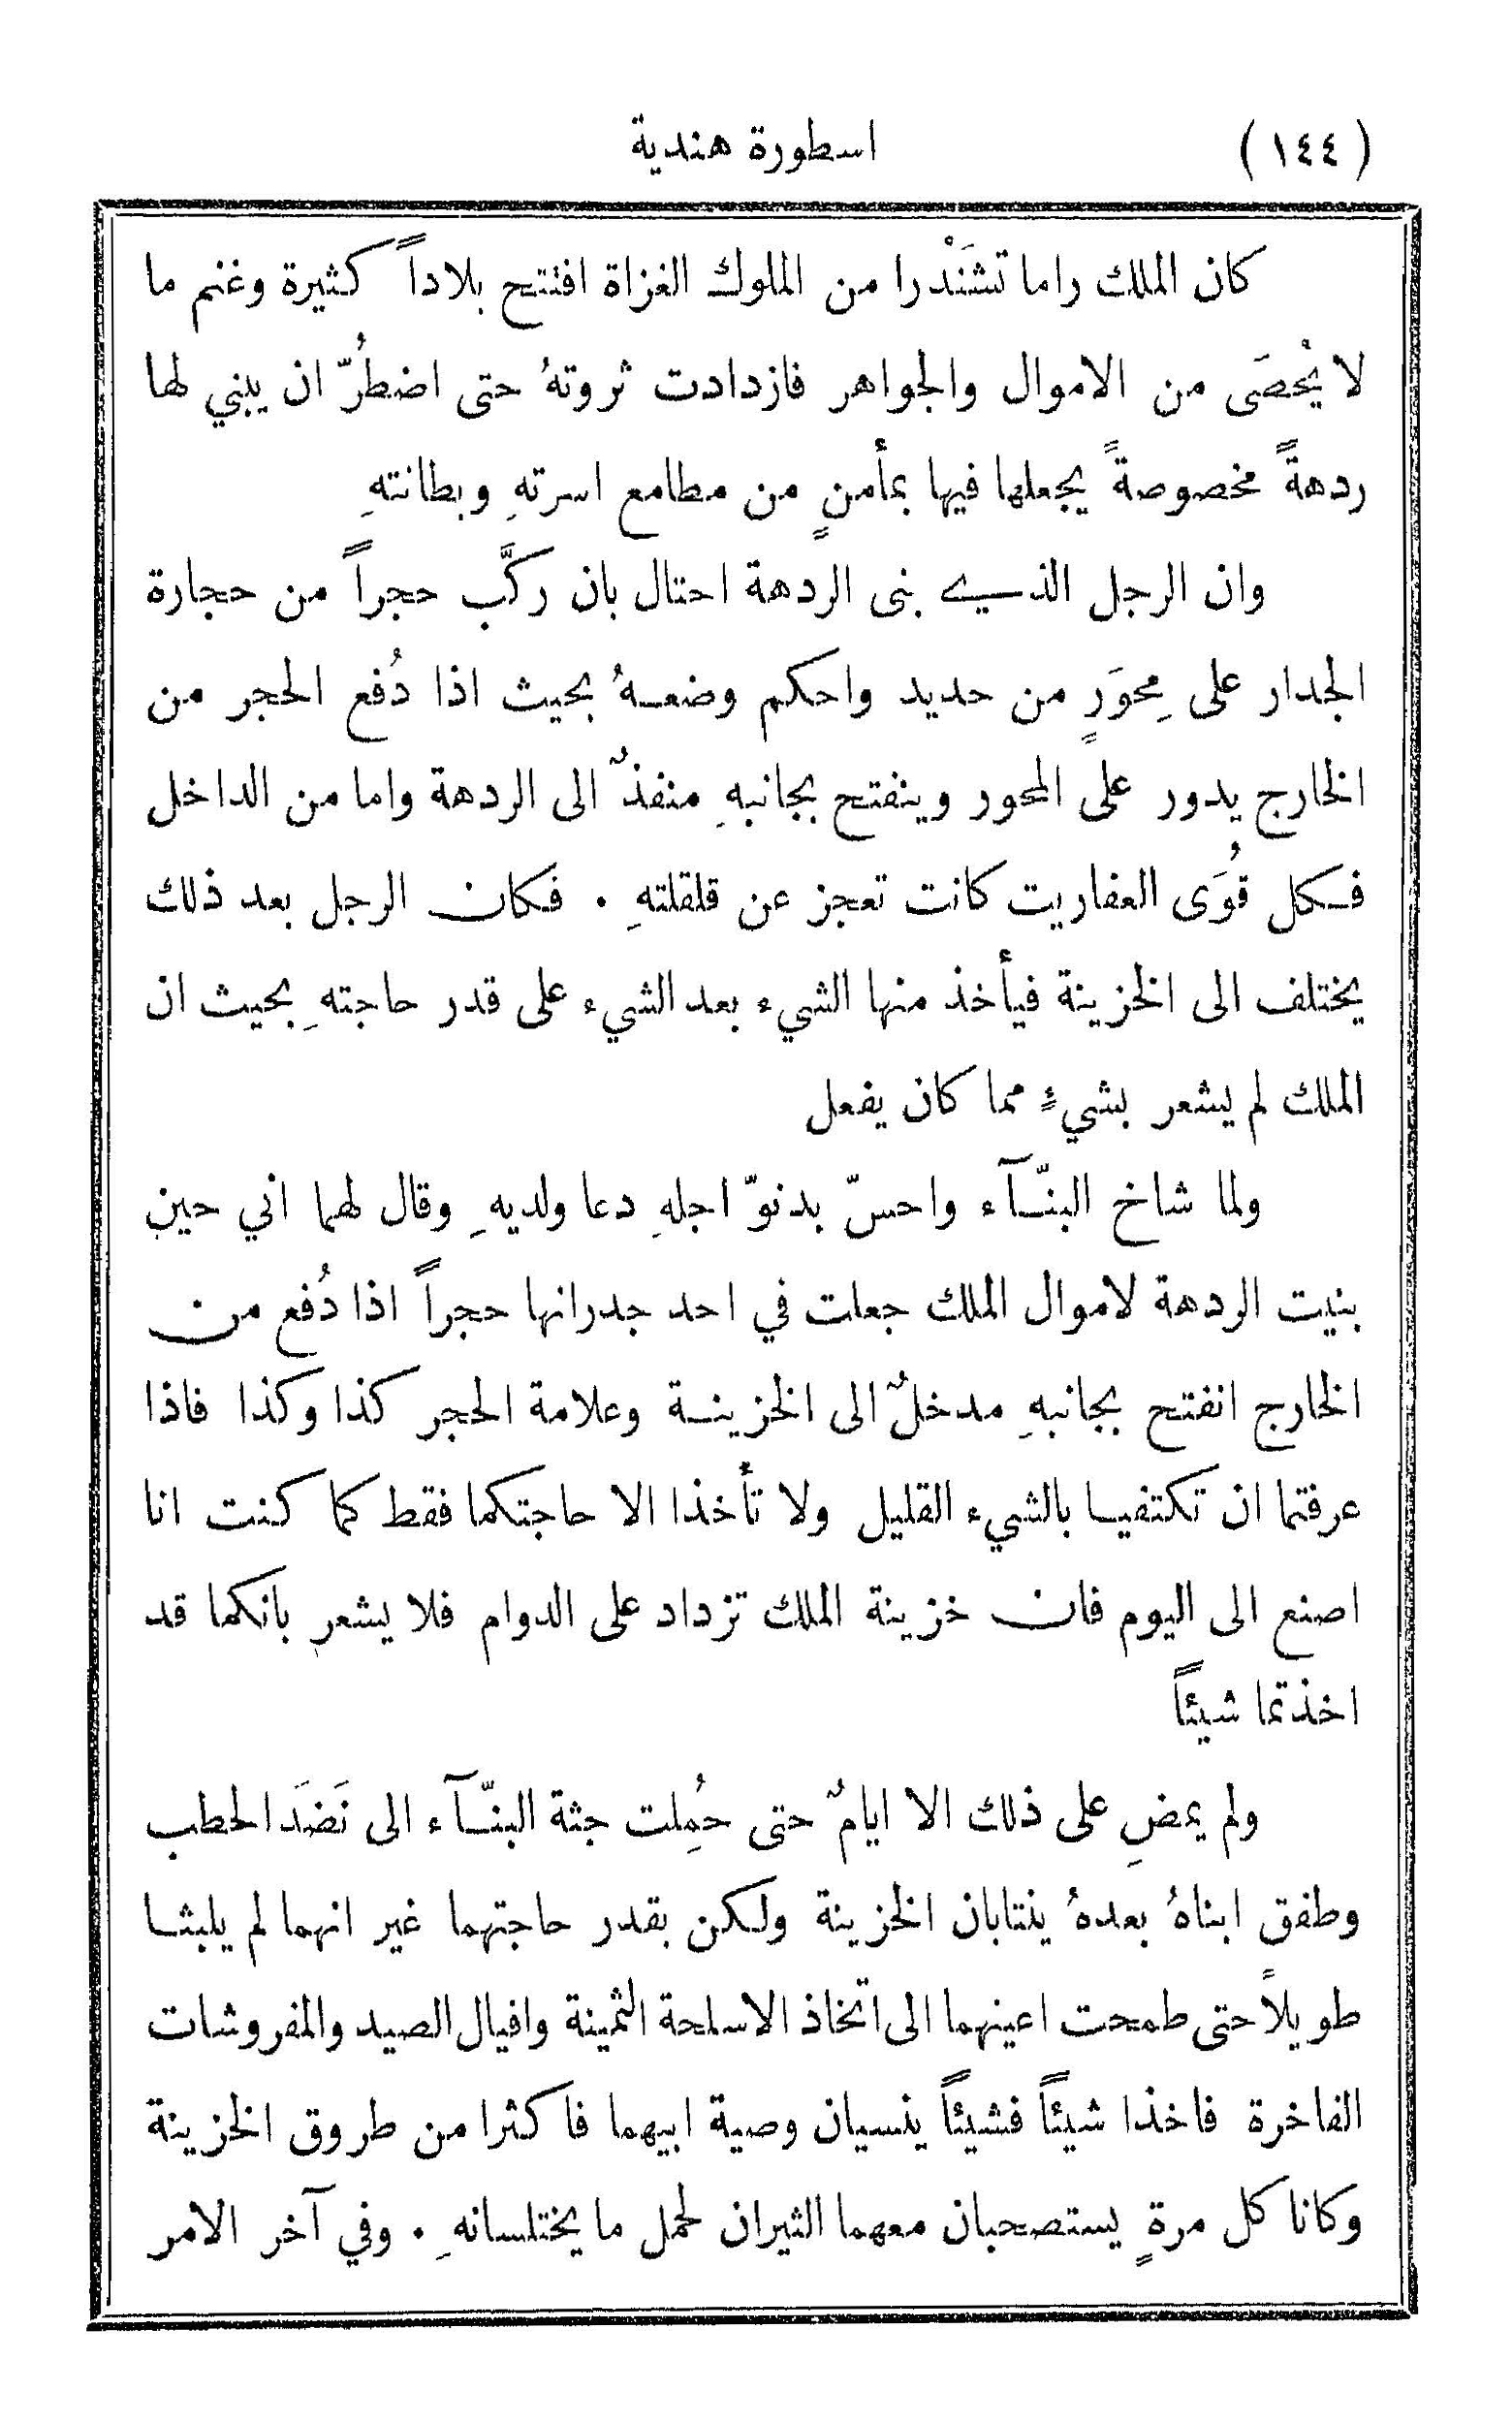 (١٤٤) اسطورة هندية
كان الملك راما تشَنْدرا من الملوك الغزاة افتتح بلاداً كثيرة وغنم ما
لا يُحْصَى من الاموال والجواهر فازدادت ثروتهُ حتى اضطُرّ ان يبني لها
ردهةً مخصوصةً يجعلها فيها بمأمنٍ من مطامع اسرتهِ وبطانتهِ
وان الرجل الذي بنى الردهة احتال بان ركَّب حجراً من حجارة
الجدار على مِحوَرٍ من حديد واحكم وضعهُ بحيث اذا دُفع الحجر من
الخارج يدور على المحور وينفتح بجانبهِ منفذٌ الى الردهة واما من الداخل
فكل قُوَى العفاريت كانت تعجز عن قلقلتهِ . فكان الرجل بعد ذلك
يختلف الى الخزينة فيأخذ منها الشيء بعد الشيء على قدر حاجتهِ بحيث ان
الملك لم يشعر بشيءٍ مما كان يفعل
ولما شاخ البنّآء واحسّ بدنوّ اجلهِ دعا ولديهِ وقال لهما اني حين
بنيت الردهة لاموال الملك جعلت في احد جدرانها حجراً اذا دُفع من
الخارج انفتح بجانبهِ مدخلٌ الى الخزينة وعلامة الحجر كذا وكذا فاذا
عرفتما ان تكتفيا بالشيء القليل ولا تأخذا الا حاجتكما فقط كما كنت انا
اصنع الى اليوم فان خزينة الملك تزداد على الدوام فلا يشعر بانكما قد
اخذتما شيئاً
ولم يمضِ على ذلك الا ايامٌ حتى حُمِلت جثة البنّآء الى نَضَد الحطب
وطفق ابناهُ بعدهُ ينتابان الخزينة ولكن بقدر حاجتهما غير انهما لم يلبثا
طويلاً حتى طمحت اعينهما الى اتخاذ الاسلحة الثمينة وافيال الصيد والمفروشات
الفاخرة فاخذا شيئاً فشيئاً ينسيان وصية ابيهما فاكثرا من طروق الخزينة
وكانا كل مرةٍ يستصحبان معهما الثيران لحمل ما يختلسانهِ . وفي آخر الامر